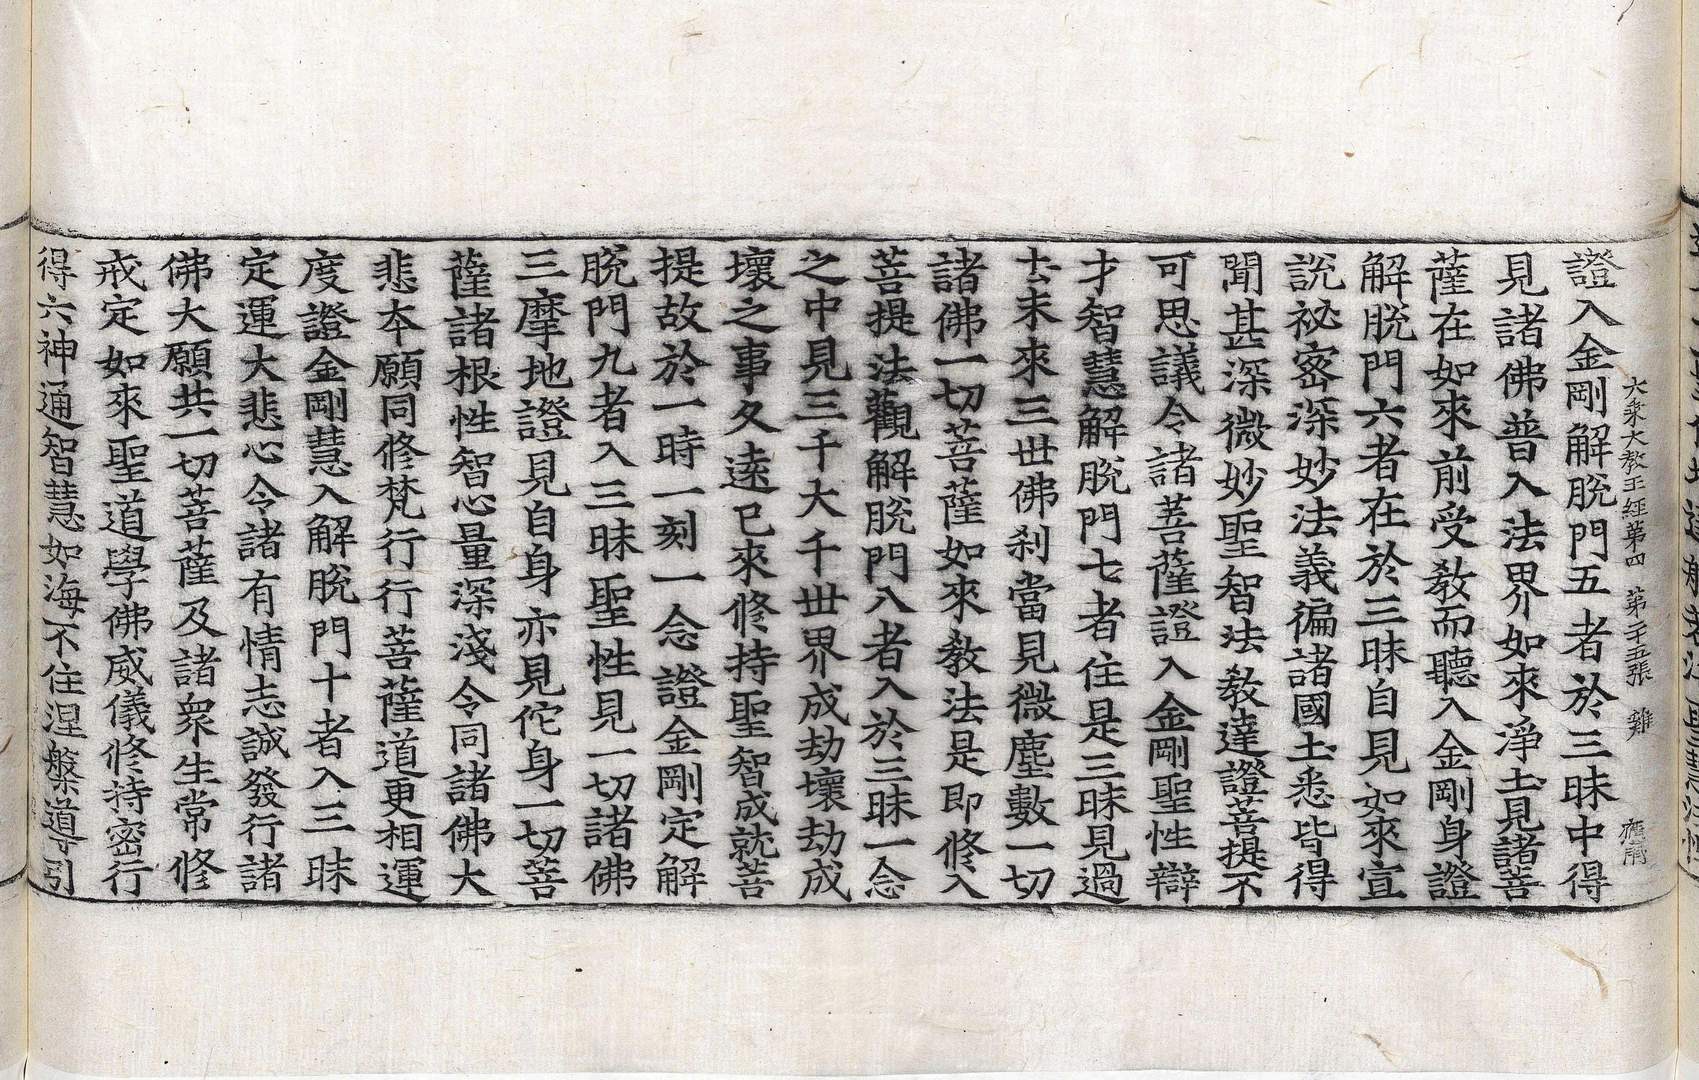 大乘大教王經第四 第二十五張 雞
證入金剛解脫門五者於三昧中得
見諸佛普入法界如來淨土見諸菩
薩在如來前受教而聽入金剛身證
解脫門六者在於三昧自見如來宣
說祕密深妙法義徧諸國土悉皆得
聞甚深微妙聖智法教達證菩提不
可思議令諸菩薩證入金剛聖性辯
才智慧解脫門七者住是三昧見過
去未來三世佛刹當見微塵數一切
諸佛一切菩薩如來教法是即修入
菩提法觀解脫門八者入於三昧一念
之中見三千大千世界成劫壞劫成
壞之事久遠已來修持聖智成就菩
提故於一時一刻一念證金剛定解
脫門九者入三昧聖性見一切諸佛
三摩地證見自身亦見佗身一切菩
薩諸根性智心量深淺令同諸佛大
悲本願同修梵行行菩薩道更相運
度證金剛慧入解脫門十者入三昧
定運大悲心令諸有情志誠發行諸
佛大願共一切菩薩及諸衆生常修
戒定如來聖道學佛威儀修持密行
得六神通智慧如海不住涅槃道引